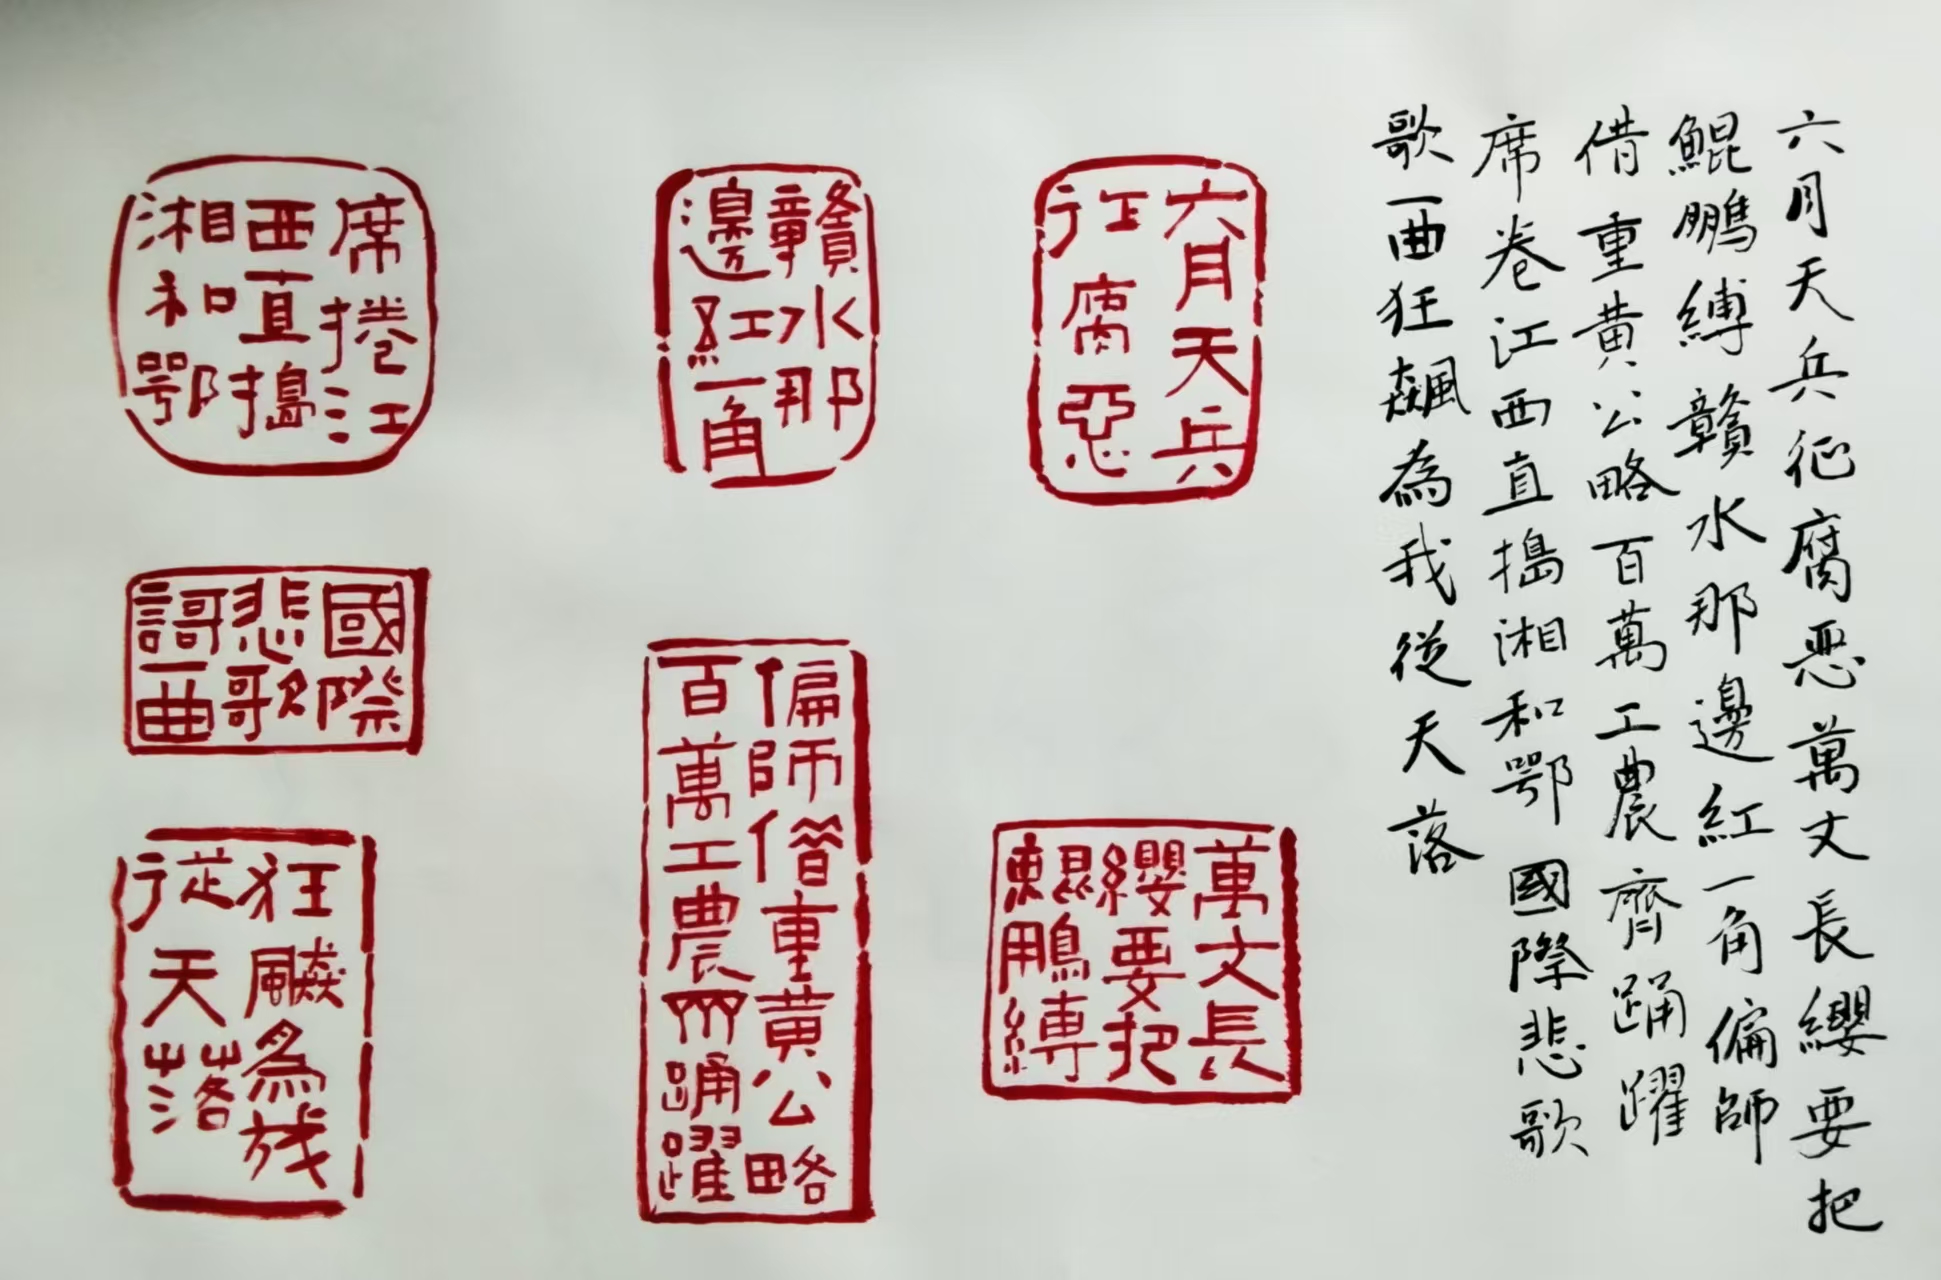 六月天兵征腐恶萬丈長纓要把
鯤鵬縛贛水那邊紅一角偏師
借重黄公略百萬工農齊踊躍
席卷江西直搗湘和鄂國際悲歌
歌一曲狂飆為我從天落
六月天兵
征腐惡
萬丈長
纓要把
鯤鵬縛
贛水那
邊紅一角
偏師借重黄公略
百萬工農齊踊躍
席捲江
西直搗
湘和鄂
國際
悲歌
謌一曲
狂飆為我
從天落